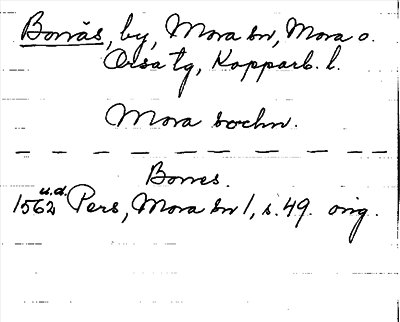 Bonäs, by, Mora sn, Mora o.
Orsa tg, Kopparb. l.
Mora sochn.
Bones.
1562 u.d. Pers, Mora sn 1, s. 49. orig.